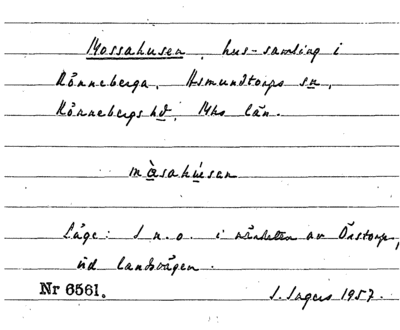 Mossahusen, hus-samling i
Rönneberga, Asmundtorps sn,
Rönnebergs hd, Mhs län.
màsahúsen
Läge: I n.o. i närheten av Önstorp,
vid landsvägen.
Nr 6561. S. Ingers 1957.